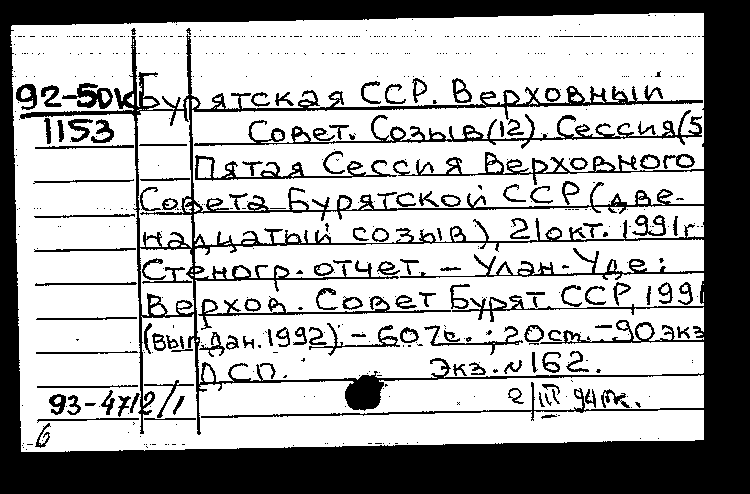 92-5ДК Бурятская ССР. Верховный
1153 Совет. Созыв(12). Сессия(5
Пятая Сессия Верховного
Совета Бурятской ССР (две-
надцатый созыв), 21 окт. 1991г
Стеногр. отчет. – Улан-Удэ:
Верхов. Совет Бурят ССР, 1991
(Вып.дан.1992). – 607с.; 20см. – 90экз
Д.С.П. Экз. № 162.
93-4712/1 2/III 94
6